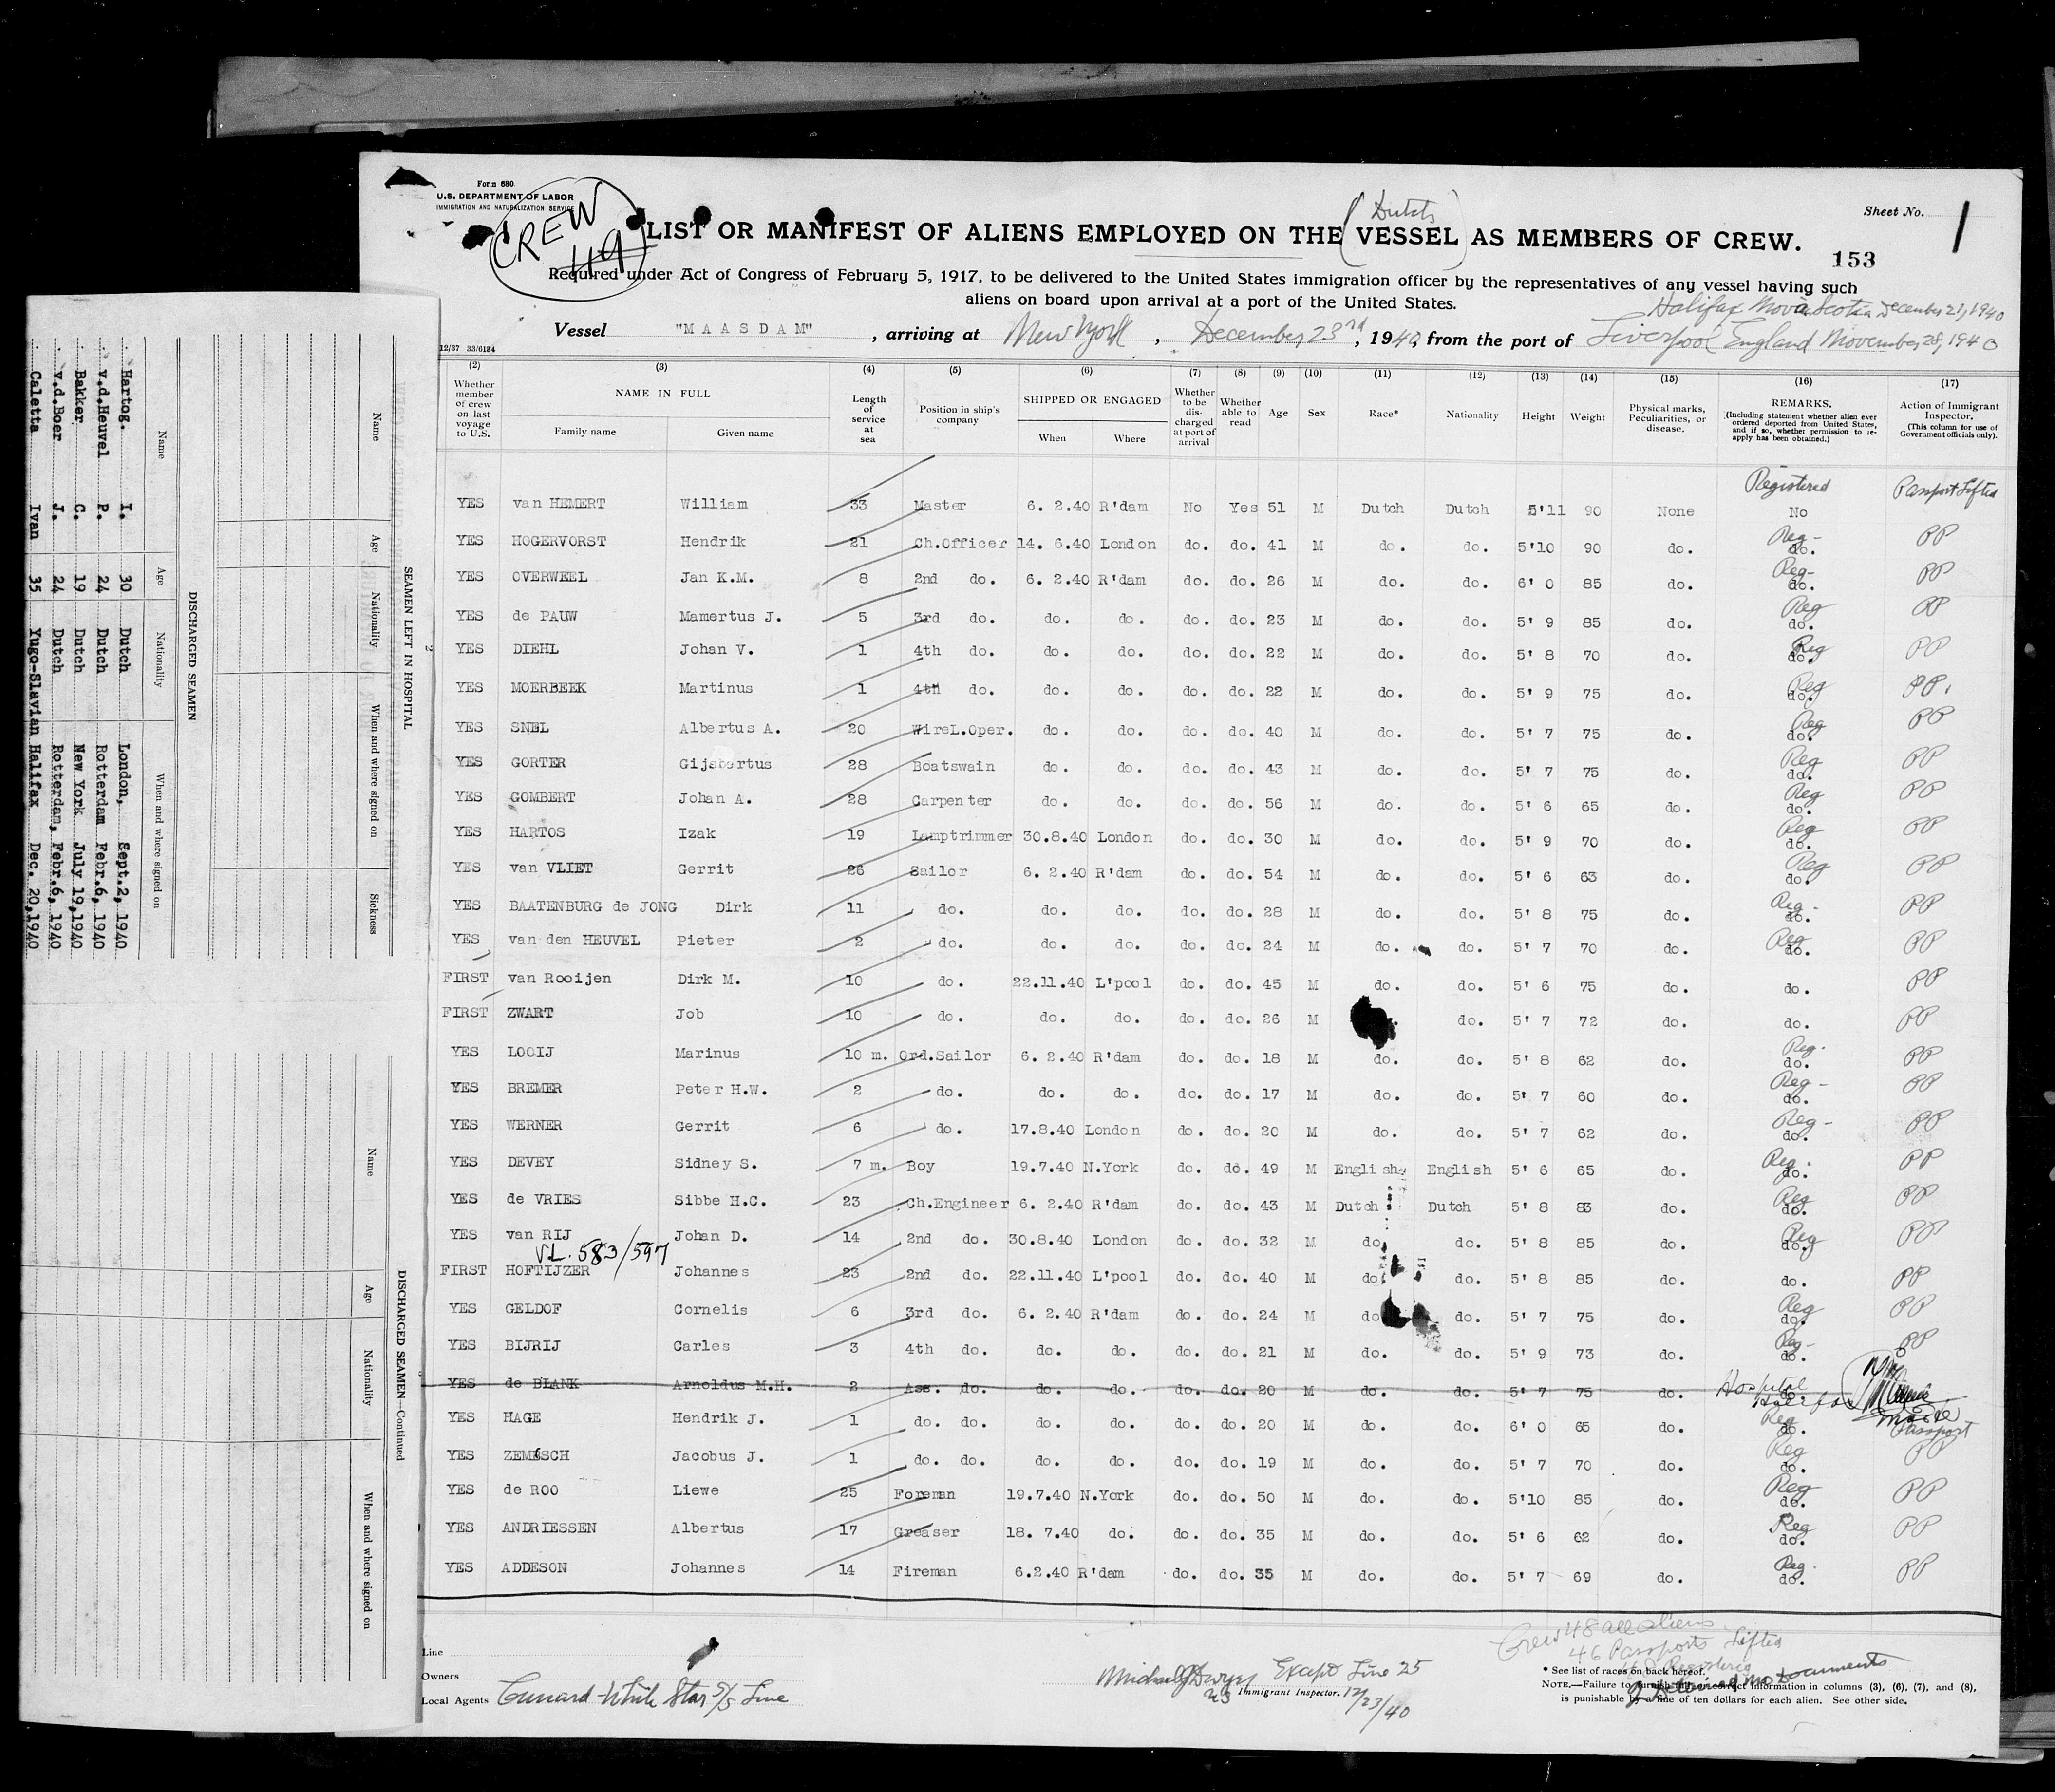 Form 680
U.S. DEPARTMENT OF LABOR
IMMIGRATION AND NATURALIZATION SERVICE
CREW
49
Sheet No. 1
(Dutch)
LIST OR MANIFEST OF ALIENS EMPLOYED ON THE VESSEL AS MEMBERS OF CREW.
153
Required under Act of Congress of February 5, 1917, to be delivered to the United States immigration officer by the representatives of any vessel having such
aliens on board upon arrival at a port of the United States.
Halifax Nova Scotia December 21, 1940
Vessel "MAASDAM", arriving at New York, December 23rd, 1940, from the port of Liverpool England November 28, 1940
12/37 33/6184
(2) Whether member of crew on last voyage to U.S. (3) NAME IN FULL Family name Given name (4) Length of service at sea (5) Position in ship's company (6) SHIPPED OR ENGAGED When Where (7) Whether to be discharged at port of arrival (8) Whether able to read (9) Age (10) Sex (11) Race* (12) Nationality (13) Height (14) Weight (15) Physical marks, Peculiarities, or disease. (16) REMARKS. (Including statement whether alien ever ordered deported from United States, and if so, whether permission to re-apply has been obtained.) (17) Action of Immigrant Inspector. (This column for use of Government officials only).
Registered Passport Lifted
YES van HEMERT William 33 Master 6. 2.40 R'dam No Yes 51 M Dutch Dutch 5'11 90 None No
YES HOGERVORST Hendrik 21 Ch.Officer 14. 6.40 London do. do. 41 M do. do. 5'10 90 do. Reg- do. PP
YES OVERWEEL Jan K.M. 8 2nd do. 6. 2.40 R'dam do. do. 26 M do. do. 6' 0 85 do. Reg- do. PP
YES de PAUW Mamertus J. 5 3rd do. do. do. do. do. 23 M do. do. 5' 9 85 do. Reg do. PP
YES DIEHL Johan V. 1 4th do. do. do. do. do. 22 M do. do. 5' 8 70 do. Reg do. PP
YES MOERBEEK Martinus 1 4th do. do. do. do. do. 22 M do. do. 5' 9 75 do. Reg do. PP.
YES SNEL Albertus A. 20 WireL.Oper. do. do. do. do. 40 M do. do. 5' 7 75 do. Reg do. PP
YES GORTER Gijsbertus 28 Boatswain do. do. do. do. 43 M do. do. 5' 7 75 do. Reg do. PP
YES GOMBERT Johan A. 28 Carpenter do. do. do. do. 56 M do. do. 5' 6 65 do. Reg do. PP
YES HARTOS Izak 19 Lamptrimmer 30.8.40 London do. do. 30 M do. do. 5' 9 70 do. Reg do. PP
YES van VLIET Gerrit 26 Sailor 6. 2.40 R'dam do. do. 54 M do. do. 5' 6 63 do. Reg do. PP
YES BAATENBURG de JONG Dirk 11 do. do. do. do. do. 28 M do. do. 5' 8 75 do. Reg- do. PP
YES van den HEUVEL Pieter 2 do. do. do. do. do. 24 M do. do. 5' 7 70 do. Reg do. PP
FIRST van Rooijen Dirk M. 10 do. 22.11.40 L'pool do. do. 45 M do. do. 5' 6 75 do. do. PP
FIRST ZWART Job 10 do. do. do. do. do. 26 M do. 5' 7 72 do. do. PP
YES LOOIJ Marinus 10 m. Ord.Sailor 6. 2.40 R'dam do. do. 18 M do. do. 5' 8 62 do. Reg. do. PP
YES BREMER Peter H.W. 2 do. do. do. do. do. 17 M do. do. 5' 7 60 do. Reg- do. PP
YES WERNER Gerrit 6 do. 17.8.40 London do. do. 20 M do. do. 5' 7 62 do. Reg- do. PP
YES DEVEY Sidney S. 7 m. Boy 19.7.40 N.York do. do. 49 M English English 5' 6 65 do. Reg. do. PP
YES de VRIES Sibbe H.C. 23 Ch.Engineer 6. 2.40 R'dam do. do. 43 M Dutch Dutch 5' 8 83 do. Reg do. PP
YES van RIJ Johan D. 14 2nd do. 30.8.40 London do. do. 32 M do. do. 5' 8 85 do. Reg do. PP
V.L. 583/597
FIRST HOFTIJZER Johannes 23 2nd do. 22.11.40 L'pool do. do. 40 M do. do. 5' 8 85 do. do. PP
YES GELDOF Cornelis 6 3rd do. 6. 2.40 R'dam do. do. 24 M do. do. 5' 7 75 do. Reg do. PP
YES BIJRIJ Carles 3 4th do. do. do. do. do. 21 M do. do. 5' 9 73 do. Reg- do. PP
YES de BLANK Arnoldus M.H. 2 Ass. do. do. do. do. do. 20 M do. do. 5' 7 75 do. Hospital do.
YES HAGE Hendrik J. 1 do. do. do. do. do. do. 20 M do. do. 6' 0 65 do. Reg do. Passport
YES ZEMESCH Jacobus J. 1 do. do. do. do. do. do. 19 M do. do. 5' 7 70 do. Reg do. PP
YES de ROO Liewe 25 Foreman 19.7.40 N.York do. do. 50 M do. do. 5'10 85 do. Reg do. PP
YES ANDRIESSEN Albertus 17 Greaser 18. 7.40 do. do. do. 35 M do. do. 5' 6 62 do. Reg do. PP
YES ADDESON Johannes 14 Fireman 6.2.40 R'dam do. do. 35 M do. do. 5' 7 69 do. Reg. do. PP
Crew 48 all aliens
46 Passports Lifted
Line
Owners
Local Agents Cunard White Star S/S Line
Michael J Dwyer Except Line 25
Immigrant Inspector. 12/23/40
* See list of races on back hereof.
NOTE.—Failure to furnish full or correct information in columns (3), (6), (7), and (8),
is punishable by a fine of ten dollars for each alien. See other side.
SEAMEN LEFT IN HOSPITAL
Name Age Nationality When and where signed on Sickness
DISCHARGED SEAMEN
Name Age Nationality When and where signed on
Hartog. I. 30 Dutch London, Sept.2, 1940
v.d.Heuvel P. 24 Dutch Rotterdam Febr.6, 1940
Bakker C. 19 Dutch New York July 19,1940
v.d.Boer J. 24 Dutch Rotterdam, Febr.6, 1940
Caletta Ivan 35 Yugo-Slavian Halifax Dec. 20,1940
DISCHARGED SEAMEN—Continued
Name Age Nationality When and where signed on